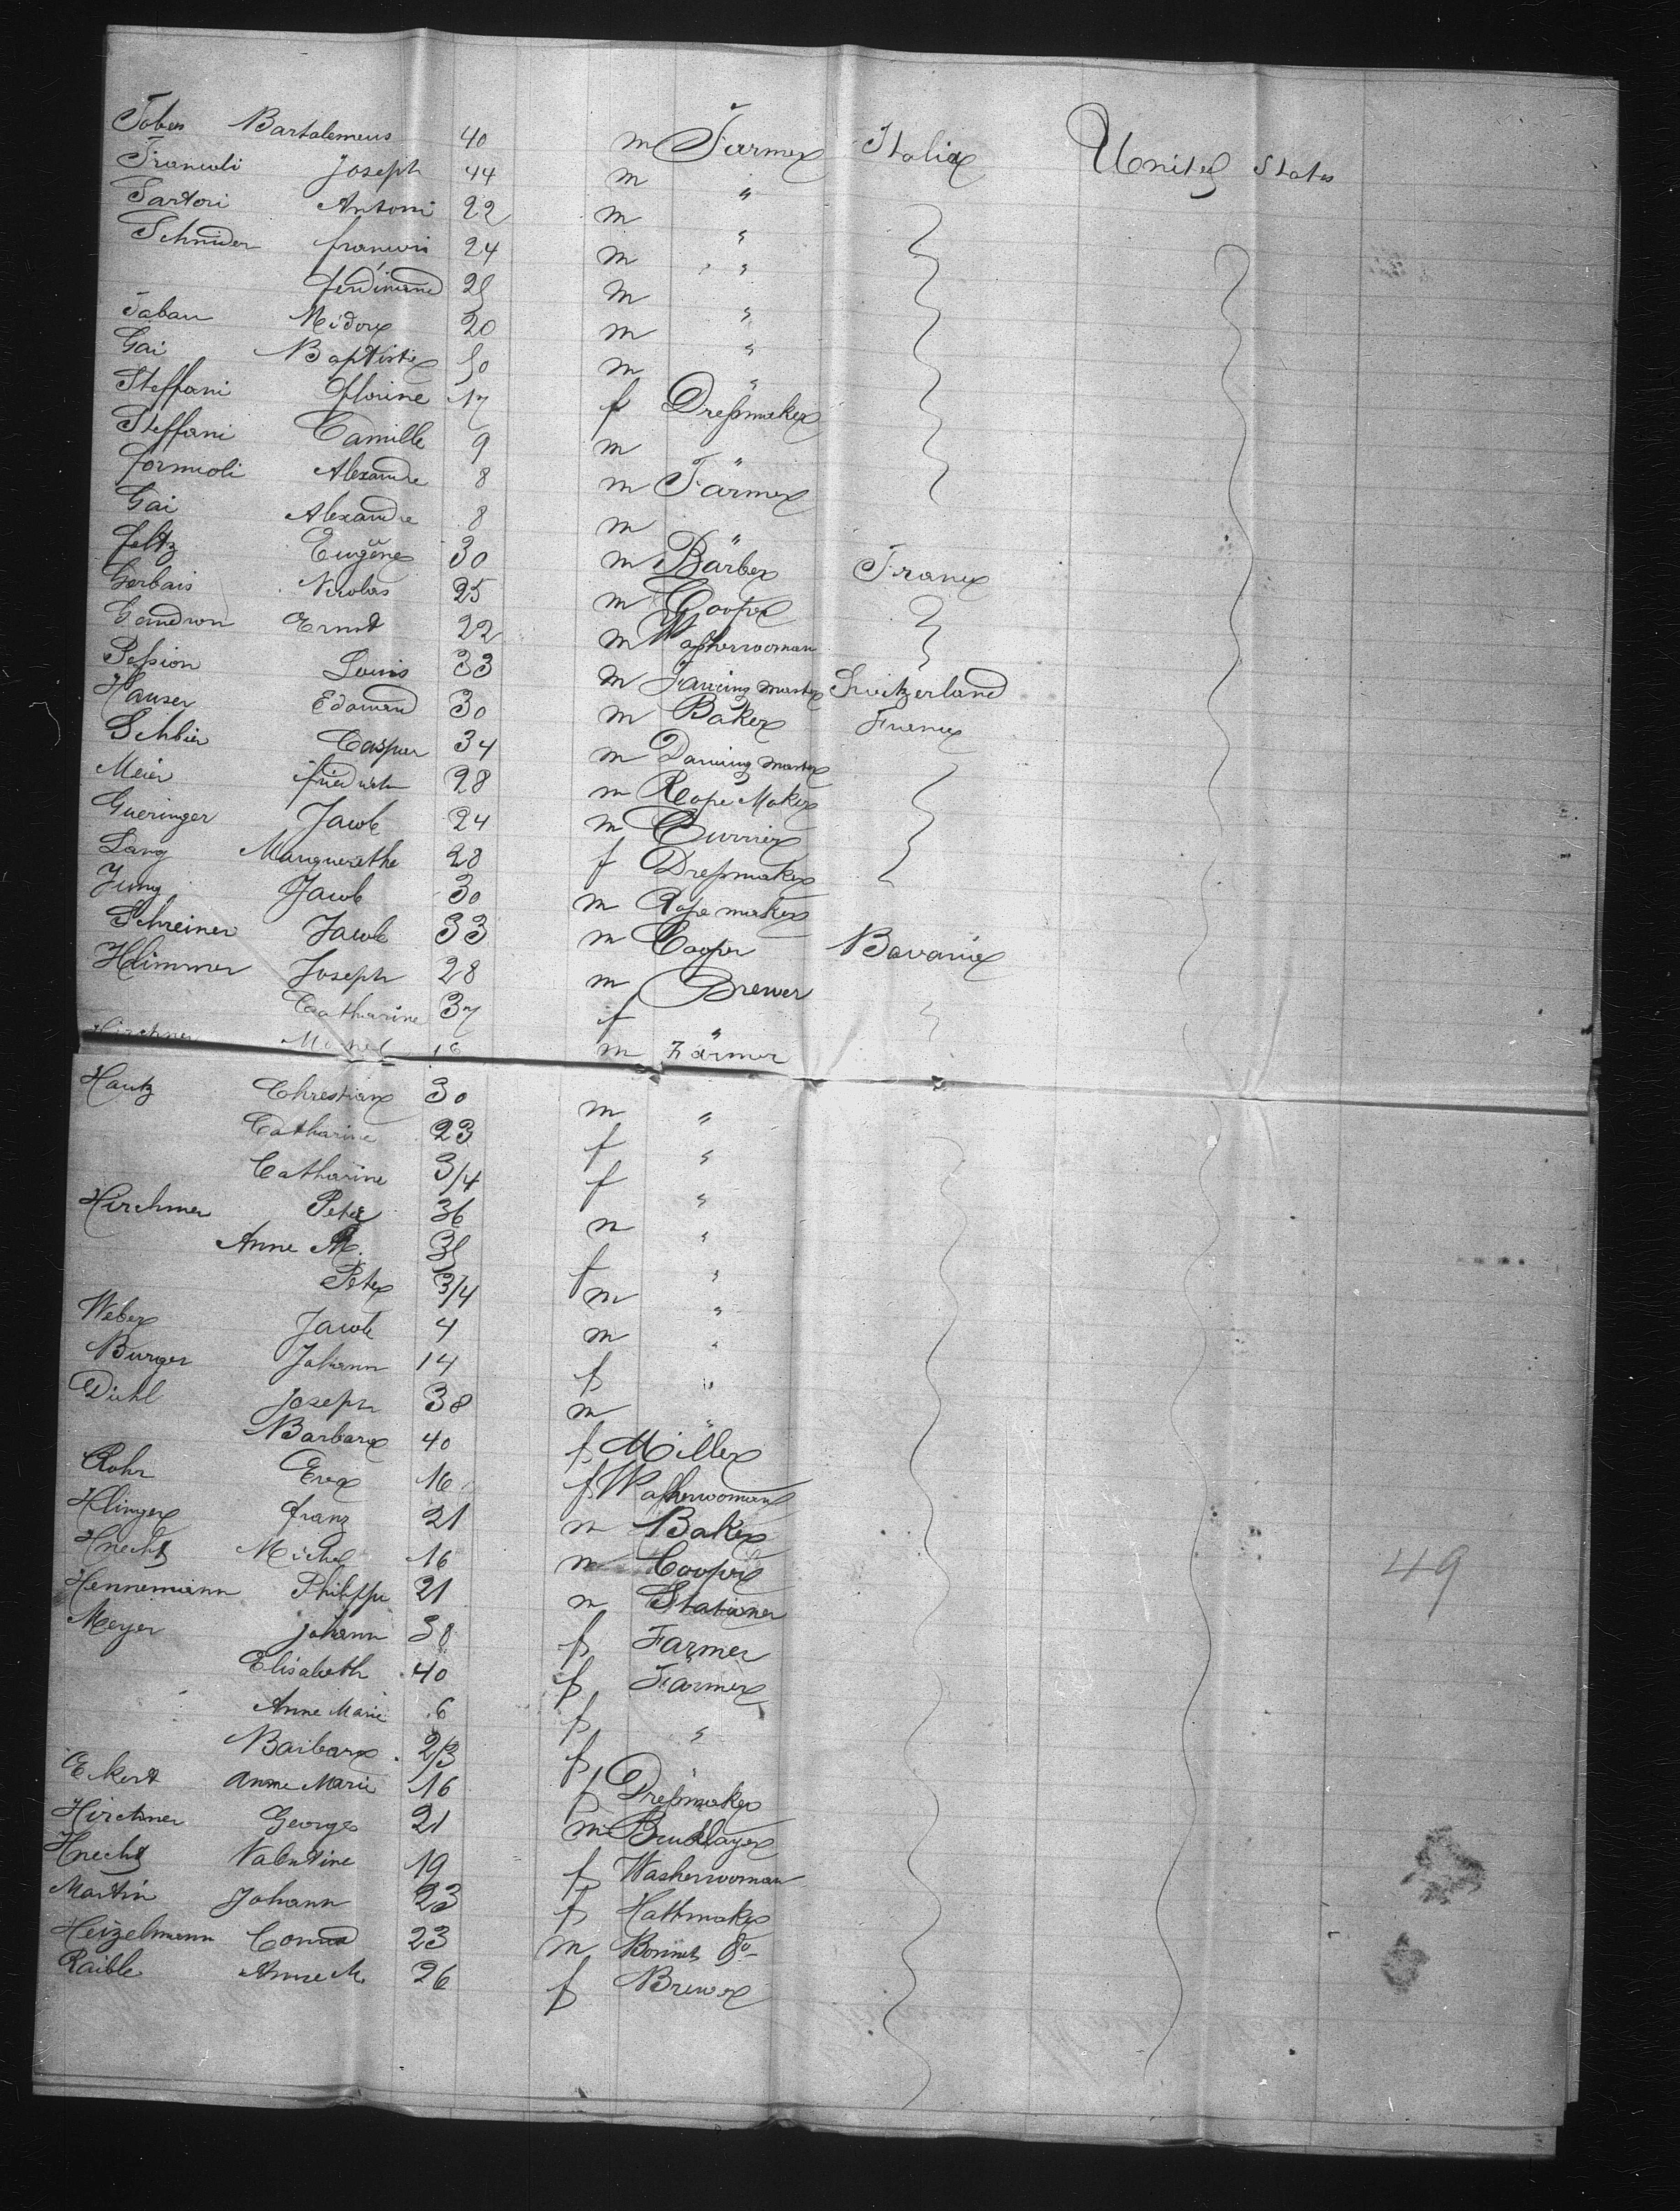 Tober Bartolemeus 40 m Farmer Italia United States
Francoli Joseph 44 m "
Sartori Antoni 22 m "
Schnider françois 24 m "
ferdinand 25 m "
Taban Midore 20 m "
Gai Baptiste 50 m "
Steffani florine 17 f Dressmaker
Steffani Camille 9 m "
formioli Alexandre 8 m Farmer
Gai Alexandre 8 m "
feltz Eugène 30 m Barber France
Gerbais Nicolas 25 m Cooper
Gandron Ernst 22 m Washerwoman
Pession Louis 33 m Dancing master Switzerland
Hauser Edouard 30 m Baker France
Schbier Caspar 34 m Dancing master
Meier friedrich 28 m Rope Maker
Gueringer Jacob 24 m Currier
Lang Marguerethe 28 f Dressmaker
Jung Jacob 30 m Rope maker
Schreiner Jacob 33 m Cooper Bavaria
Hlimmer Joseph 28 m Brewer
Catharine 37 f "
Hirchner 16 m Farmer
Hautz Chrestian 30 m "
Catharine 23 f "
Catharine 3/4 f "
Hirchner Peter 36 m "
Anne M. 35 f "
Peter 3/4 m "
Weber Jacob 4 m "
Burger Johann 14 f "
Diehl Joseph 38 m "
Barbara 40 f Miller
Rohr Eva 16 f Washerwoman
Hlinger franz 21 m Baker
Hnecht Michel 16 m Cooper
Hennemann Philippe 21 m Stationer
Meyer Johann 38 f Farmer
Elisabeth 40 f Farmer
Anne Marie 6 f "
Barbara 2/3 f
Eckert Anne Marie 16 f Dressmaker
Hirchner Georges 21 m Bricklayer
Hnecht Valentine 19 f Washerwoman
Martin Johann 23 f Hattmaker
Heizelmann Conrad 23 m Bonnet do
Raible Anne M. 26 f Brewer
49